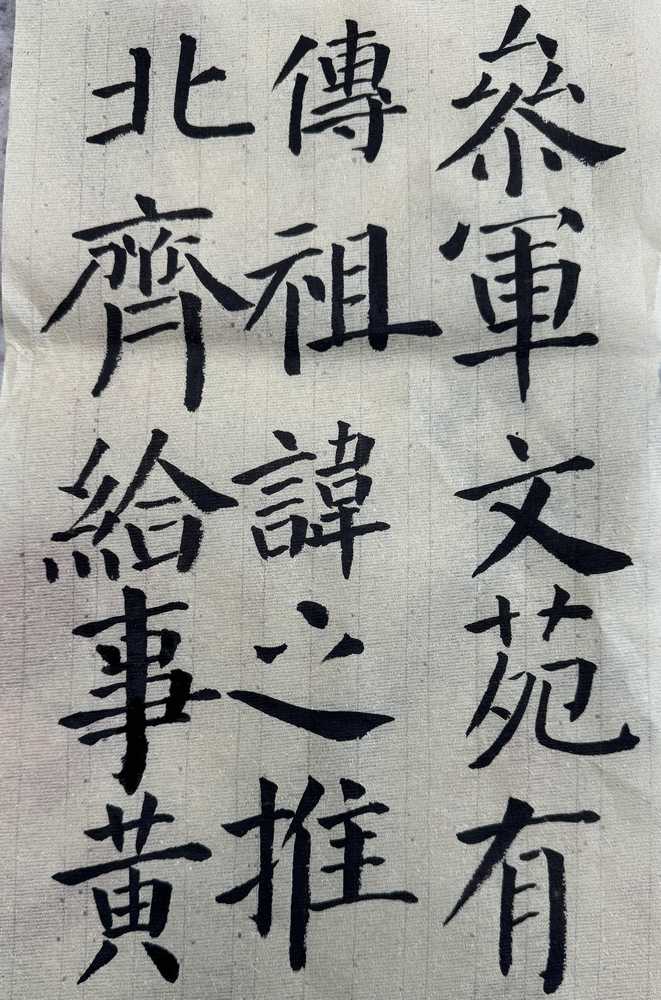 參軍文苑有
傳祖諱之推
北齊給事黃